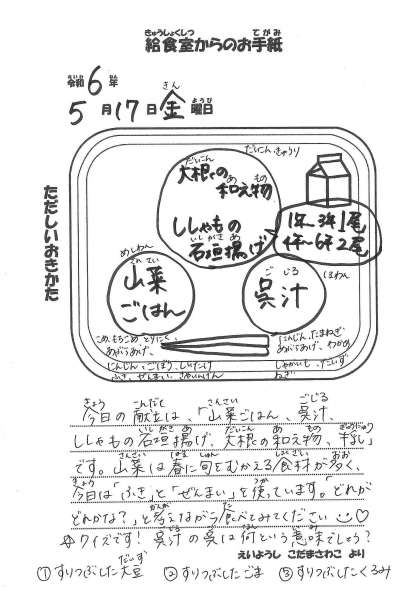 給食室からのお手紙
令和6年
5月17日金曜日
ただしいおきかた
だいこん、きゅうり
大根の
和え物
ししゃもの
石垣揚げ
1年~3年1尾
4年~6年2尾
めしわん
山菜
ごはん
呉汁
しるわん
こめ、もちごめ、とりにく、
あぶらあげ、
にんじん、ごぼう、しいたけ
ふき、ぜんまい、さやいんげん
にんじん、たまねぎ
あぶらあげ、わかめ
じゃがいも、だいず
ねぎ
今日の献立は、「山菜ごはん、呉汁、
ししゃもの石垣揚げ、大根の和え物、牛乳」
です。山菜は春に旬をむかえる食材が多く、
今日は「ふき」と「ぜんまい」を使っています。「どれが
どれかな?」と考えながら食べてみてください
クイズです! 呉汁の呉は何という意味でしょう?
えいようし こだまさわこ より
①すりつぶした大豆 ②すりつぶしたごま ③すりつぶしたくるみ